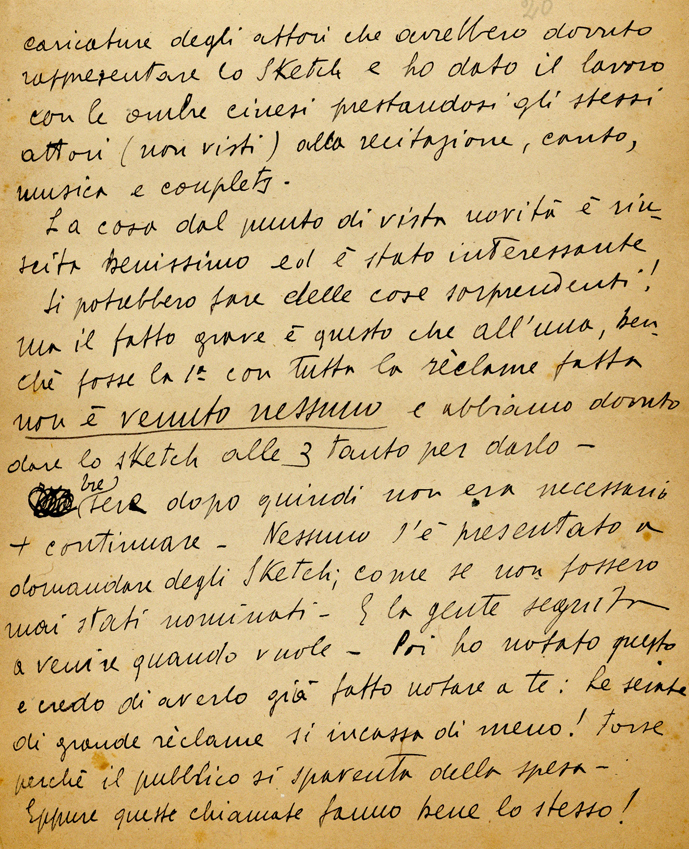 20
caricature degli attori che avrebbero dovuto
rappresentare lo Sketch e ho dato il lavoro
con le ombre cinesi prestandosi gli stessi
attori (non visti) alla recitazione, canto,
musica e couplets.
La cosa dal punto di vista novità è riu-
scita benissimo ed è stato interessante
Si potrebbero fare delle cose sorprendenti!
ma il fatto grave è questo che all'una, ben-
chè fosse la 1ª con tutta la rèclame fatta
non è venuto nessuno e abbiamo dovuto
dare lo sketch alle 3 tanto per darlo -
tre
sere dopo quindi non era necessario
+ continuare - Nessuno s'è presentato a
domandare degli Sketch; come se non fossero
mai stati nominati - E la gente seguita
a venire quando vuole - Poi ho notato questo
e credo di averlo già fatto notare a te: Le serate
di grande rèclame si incassa di meno! Forse
perchè il pubblico si spaventa della spesa -
Eppure queste chiamate fanno bene lo stesso!